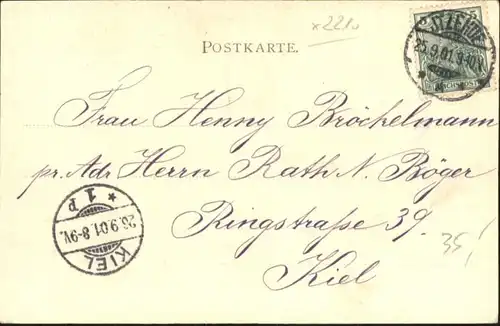 x221o
POSTKARTE.
ITZEHOE
25.9.01.9-10V
REICHSPOST
Frau Henny Bröckelmann
pr. Adr Herrn Rath N. Böger
Ringstraße 39.
Kiel
KIEL
26.9.01.8-9V.
* 1 P
35,/